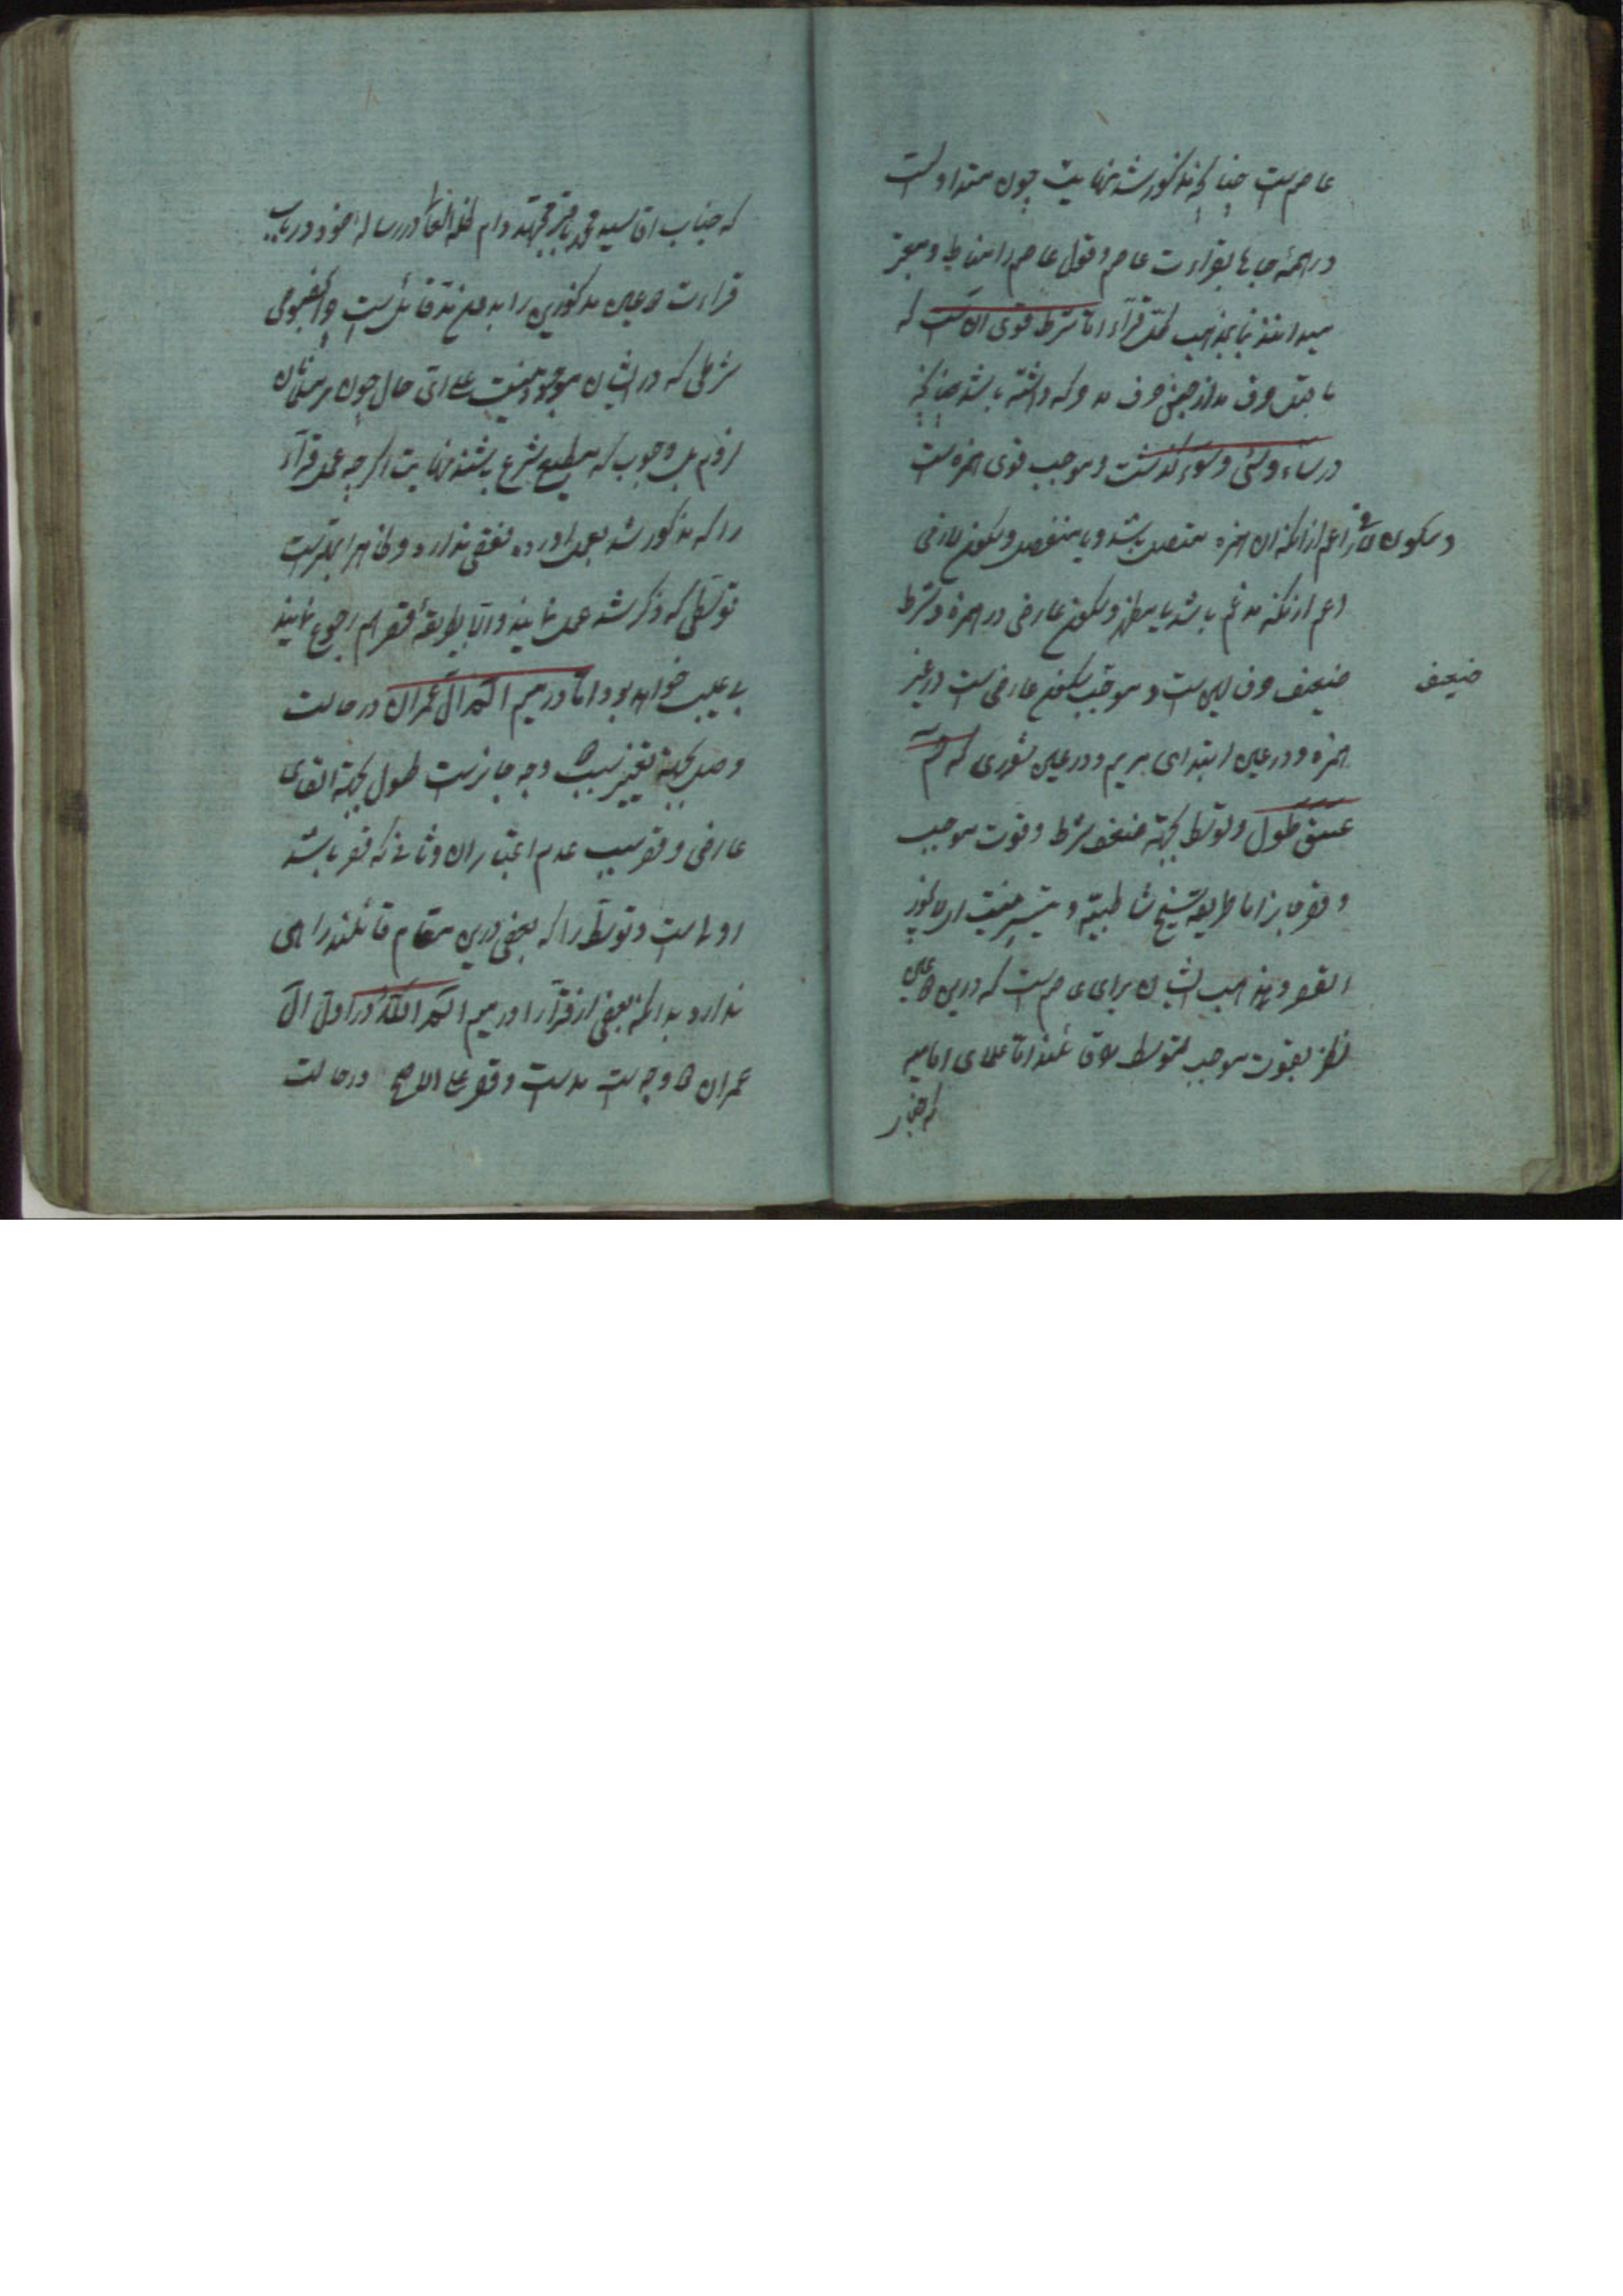 عاصم ست چنانچه مذکور شد نهایت چون متداولست
در همهٔ جاها بقراءت عاصم و قول عاصم را مناط و معتبر
میدانند بنا بمذهب کل قرآء اما شرط قوی آن ست که
ما قبل حرف مد از جنس حرف مد حرکه داشته باشد چنانچه
در ساء و سئ و سوء گذشت و موجب قوی همزه ست
و سکون اعم از آنکه ان همزه متصل باشد و یا منفصل و سکون لازمی
اعم از آنکه مدغم باشد یا مظهر و سکون عارضی در همزه و شرط
ضعیف
ضعیف حرف لین ست و موجب سکون عارضی ست در غیر
همزه و در عین ابتدای مریم و در عین شوری که حم
عسق طول و توسط بجهة ضعف شرط و قوت موجب
و قصر جایز اما طریقهٔ شیخ شاطبیه و تیسیر نیست
القصر و مذهب ایشان برای عاصم ست که درین عین
نظر بقوت موجب بتوسط قائلند اما علمای امامیه
که جناب
که جناب اقا سید محمد باقر مجتهد دام ظله العالی در رساله خود در باب
قراءت عین مذکورین را بدون مد قائل ست و
شرطی که در ایشان موجود نیست علی ای حال چون بر مسلمانان
لازم بل وجوب که مطیع شرع باشند نهایت اگر چه عمل قرآء
را که مذکور شد بعمل اورده نقصی ندارد و ظاهرا بهترست
توسطی که ذکر شد عمل نمایند و الا بطریقهٔ قصر هم رجوع نمایند
بی عیب خواهد بود اما در میم الم آل عمران در حالت
وصل بجهة تغییر سبب وجه جایزست طول بجهة التقای
عارضی و قصر بسبب عدم اعتبار ان و ثانی که قصر باشد
اولی ست و توسط را که بعضی درین مقام قائلند راهی
ندارد بدانکه بعضی از قرآء را در میم الم الله در اول ال
عمران وجه ست مد ست و قصر علی الاصح در حالت